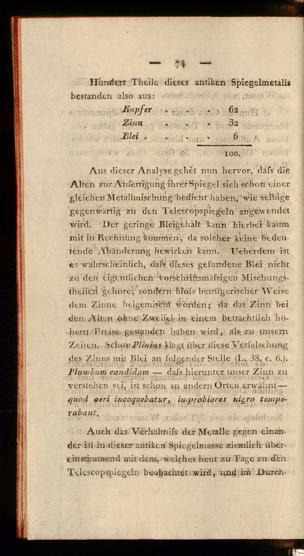 — 74 —
Hundert Theile dieses antiken Spiegelmetalls
bestanden also aus:
Kupfer . . . . 62
Zinn . . . . 32
Blei . . . . . 6
100.
Aus dieser Analyse gehet nun hervor, daſs die
Alten zur Anfertigung ihrer Spiegel sich schon einer
gleichen Metallmischung bedient haben, wie selbige
gegenwärtig zu den Telescopspiegeln angewendet
wird. Der geringe Bleigehalt kann hierbei kaum
mit in Rechnung kommen, da solcher keine bedeu-
tende Abänderung bewirken kann. Ueberdem ist
es wahrscheinlich, daſs dieses gefundene Blei nicht
zu den eigentlichen vorschriftsmäſsigen Mischungs-
theilen gehöre, sondern bloſs betrügerischer Weise
dem Zinne beigemischt worden; da das Zinn bei
den Alten ohne Zweifel in einem beträchtlich hö-
hern Preise gestanden haben wird, als zu unsern
Zeiten. Schon Plinius klagt über diese Verfälschung
des Zinns mit Blei an folgender Stelle (L. 38, c. 6.).
Plumbum candidum — daſs hierunter unser Zinn zu
verstehen sei, ist schon an andern Orten erwähnt —
quod aeri incoquebatur, improbiores nigro tempe-
rabant.
Auch das Verhältniſs der Metalle gegen einan-
der ist in dieser antiken Spiegelmasse ziemlich über-
einstimmend mit dem, welches heut zu Tage zu den
Telescopspiegeln beobachtet wird, und im Durch-